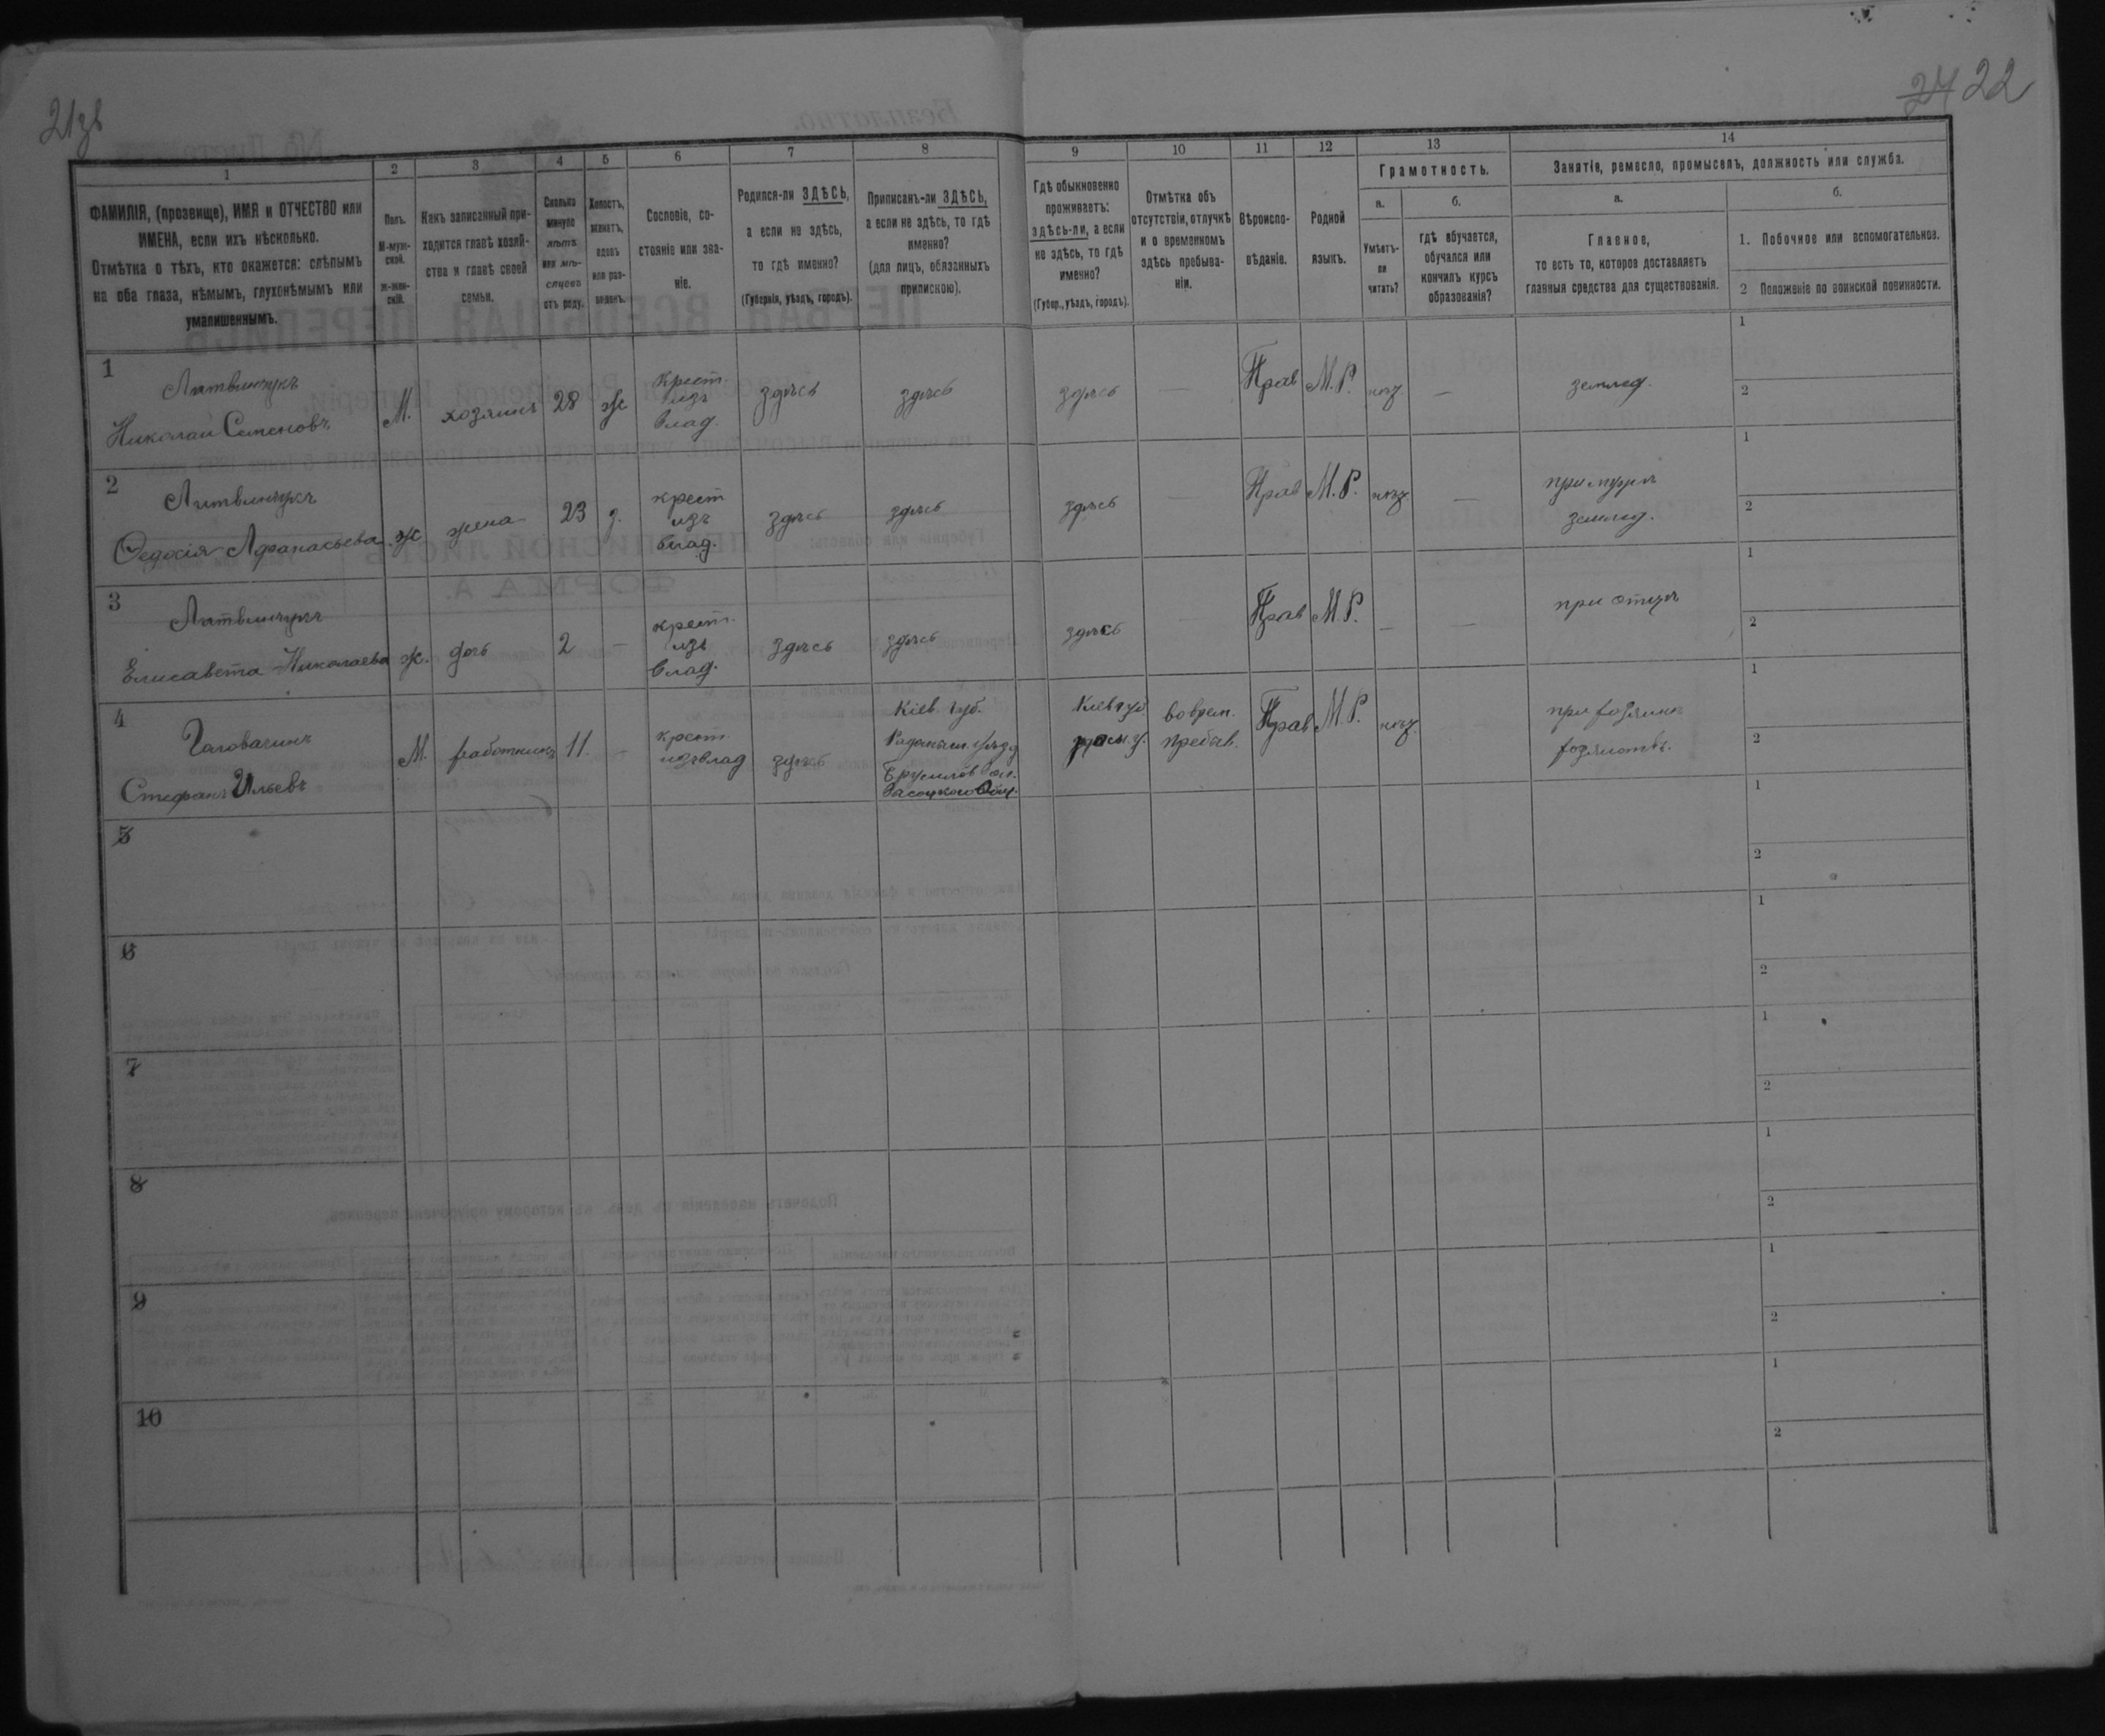 21зв
24 22
1
2
3
4
5
6
7
8
9
10
11
12
13
14
ФАМИЛІЯ, (прозвище), ИМЯ и ОТЧЕСТВО или
ИМЕНА, если ихъ нѣсколько.
Отмѣтка о тѣхъ, кто окажется: слѣпымъ
на оба глаза, нѣмымъ, глухонѣмымъ или
умалишеннымъ.
Полъ.
М-муж-
ской.
ж-жен-
скій.
Какъ записанный при-
ходится главѣ хозяй-
ства и главѣ своей
семьи.
Сколько
минуло
лѣтъ
или мѣ-
сяцевъ
отъ роду.
Холостъ,
женатъ,
вдовъ
или раз-
веденъ.
Сословіе, со-
стояніе или зва-
ніе.
Родился-ли ЗДѢСЬ,
а если не здѣсь,
то гдѣ именно?
(Губернія, уѣздъ, городъ).
Приписанъ-ли ЗДѢСЬ,
а если не здѣсь, то гдѣ
именно?
(для лицъ, обязанныхъ
припискою).
Гдѣ обыкновенно
проживаетъ:
здѣсь-ли, а если
не здѣсь, то гдѣ
именно?
(Губер., уѣздъ, городъ).
Отмѣтка объ
отсутствіи, отлучкѣ
и о временномъ
здѣсь пребыва-
ніи.
Вѣроиспо-
вѣданіе.
Родной
языкъ.
Грамотность.
а.
Умѣетъ-
ли
читать?
б.
гдѣ обучается,
обучался или
кончилъ курсъ
образованія?
Занятіе, ремесло, промыселъ, должность или служба.
а.
Главное,
то есть то, которое доставляетъ
главныя средства для существованія.
б.
1. Побочное или вспомогательное.
2 Положеніе по воинской повинности.
1
Литвинчукъ
Николай Семеновъ
М.
хозяинъ
28
ж
крест.
изъ
влад.
здѣсь
здѣсь
здѣсь
—
Прав
М.Р.
—
землед.
1
2
2
Литвинчукъ
Федосія Афанасьева
ж
жена
23
з.
крест
изъ
влад.
здѣсь
здѣсь
здѣсь
—
Прав
М.Р.
—
при мужѣ
землед.
1
2
3
Литвинчукъ
Елисавета Николаева
ж.
дочь
2
—
крест.
изъ
влад.
здѣсь
здѣсь
здѣсь
—
Прав
М.Р.
—
—
при отцѣ
1
2
4
Стефанъ Ильевъ
М.
работникъ
11.
—
крест.
изъ влад
здѣсь
Кіев. губ.
Радомысл. уѣзд
Брусилов вол.
Кіев губ
во врем.
пребыв.
Прав
М.Р.
при хозяинѣ
1
2
5
1
2
6
1
2
7
1
2
8
1
2
9
1
2
10
1
2